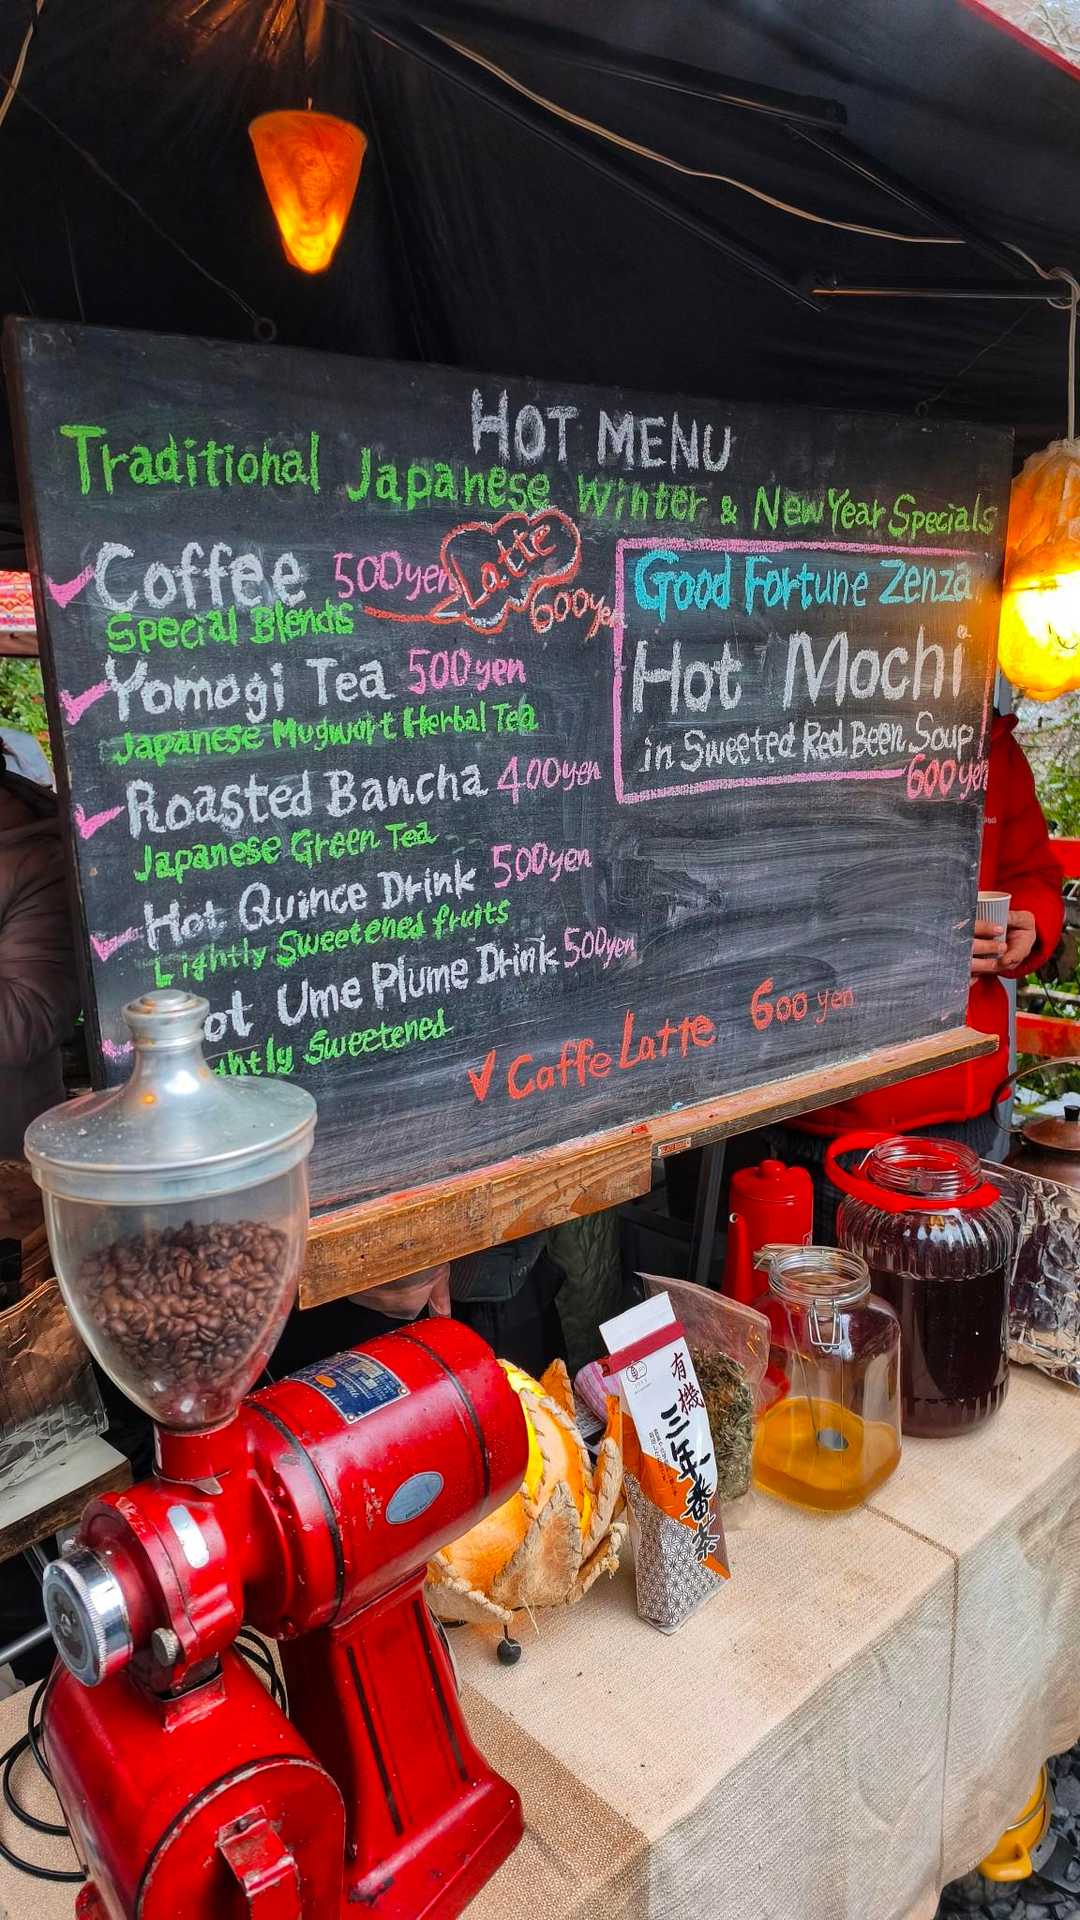 HOT MENU
Traditional Japanese Winter & New Year Specials
Coffee 500yen
Latte
600yen
Special Blends
Yomogi Tea 500yen
Japanese Mugwort Herbal Tea
Roasted Bancha 400yen
Japanese Green Tea
Hot Quince Drink 500yen
Lightly Sweetened fruits
Ume Plume Drink 500yen
Sweetened
Good Fortune Zenzai
Hot Mochi
in Sweeted Red Been Soup
600yen
Caffe Latte 600 yen
有機
三年番茶